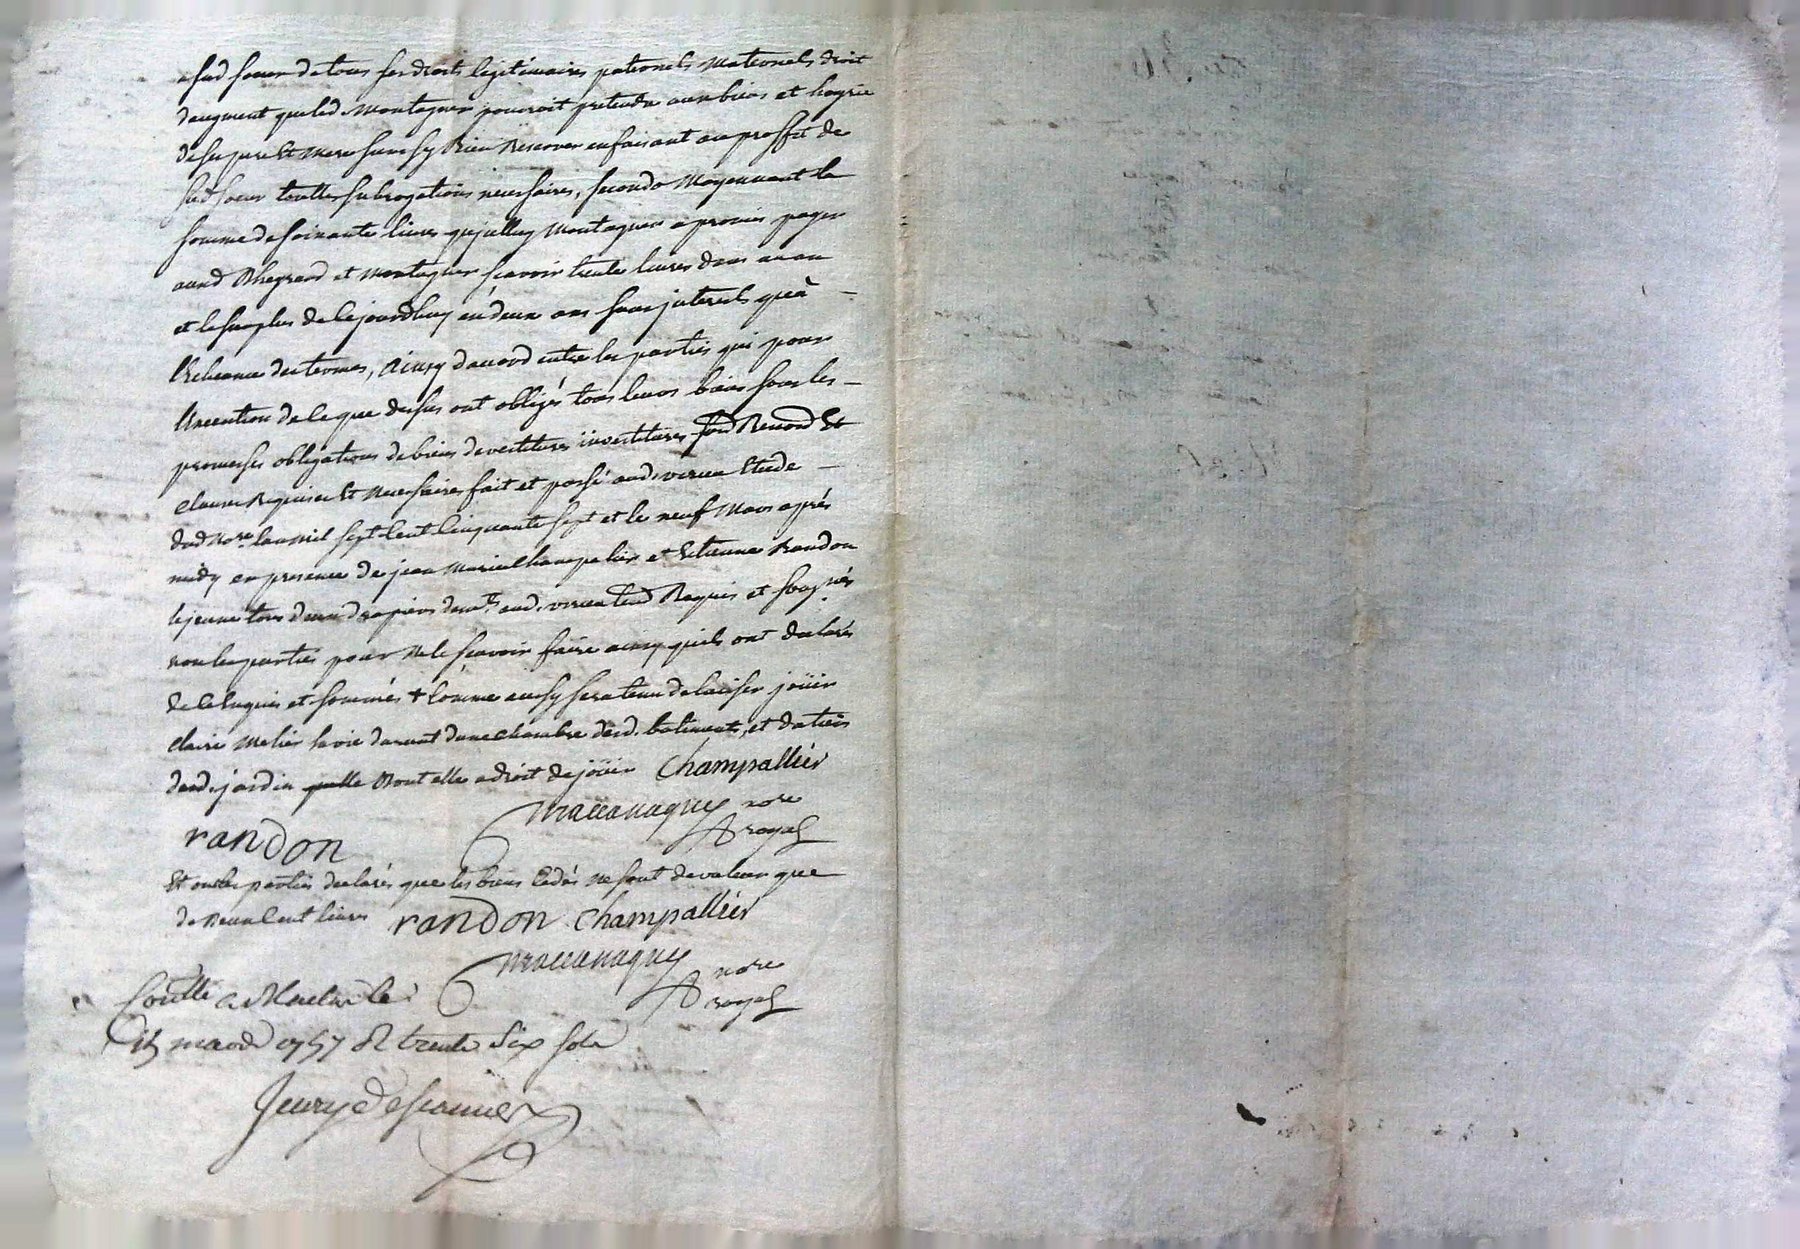 asad soeur de tous ses droits legitimaires paternels maternels droit
daugment que lad. Montagner pouroit pretendre aux biens et hoyrie
de ses pere et mere sans sy rien reserver en faisant au proffit de
sad soeur touttes subrogations necessaires, secondo moyennant la
somme de soixante livres qu'julluy Montagner a promis payer
auxd et Montagner scavoir trente livres dans un an
et le surplus de cejourdhuy en deux ans sans jnterests qu'à
l'echeance des termes, ainsy daccord entre les parties qui pour
l'execution de ce que dessus ont obligés tous leurs biens sous les
promesses obligations de biens devestitures investitures Renond et
clauses requises et necessaires fait et passé aud. virieu Etude
dud nore. lan mil sept cent cinquante sept et le neuf mars après
midy en presence de jean marie Champalier et Etienne Randon
le jeune tous deux drapiers dem.t aud. virieu Requis et soug.nés
non les parties pour ne le scavoir faire ainsy quils ont declarés
de ce enquis et sommés + comme aussy sera tenu de laisser joüir
claire Melier sa vie durant dune chambre desd. batiments, et du tiers
dud. jardin dont elle a droit de joüir Champallier
nore
royal
randon
Et ont les parties declarés que les biens cedés ne sont de valeur que
de deux cent livres randon Champallier
nore
royal
Conttlé a le
15 mars 1757 R trente six sols